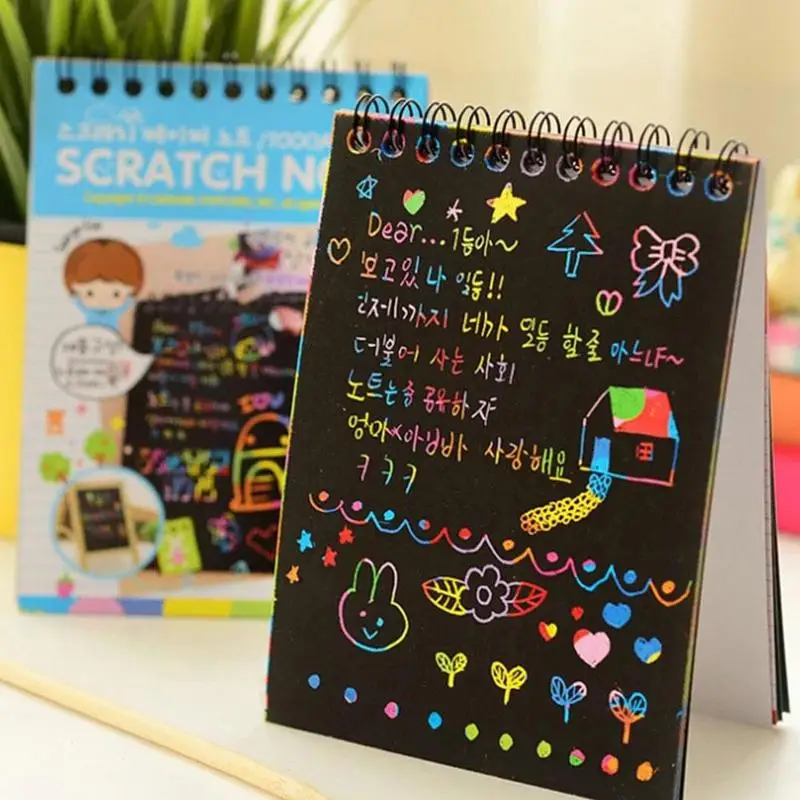 스크래치 페이퍼 노트 /1000A
SCRATCH NO
Dear... 1등아~
보고있나 일등!!
언제까지 네가 일등 할줄 아느냐~
더불어 사는 사회
노트는좀 공유하자
엄마×아부바 사랑해요
ㅋㅋㅋ